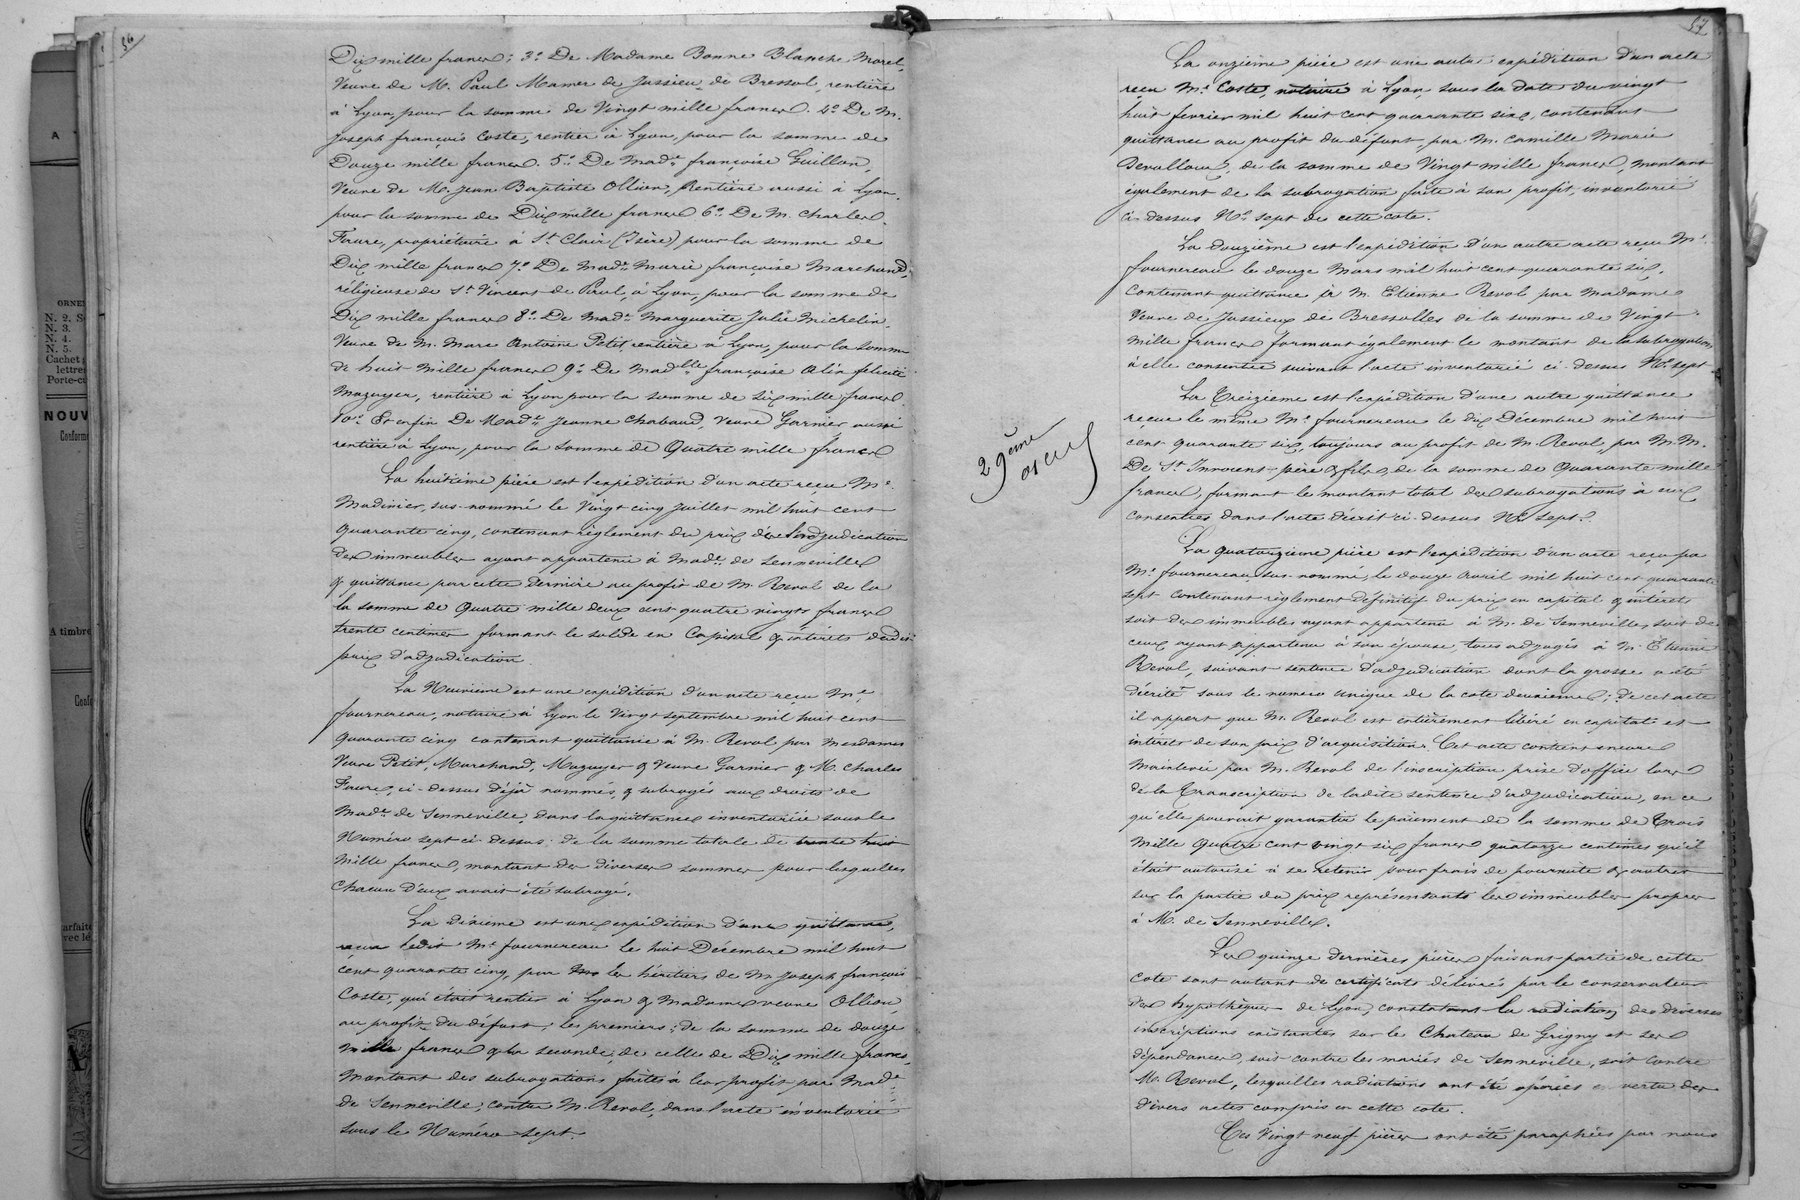 56
Dix mille francs; 3.° De Madame Bonne Blanche Morel,
Veuve de M. Paul Mamer de Jussieu de Bressol, rentière
à Lyon, pour la somme de Vingt mille francs. 4.° De M.
Joseph françois Coste, rentier à Lyon, pour la somme de
Douze mille francs. 5.° De Mad.e françoise Guillon,
Veuve de M. Jean Baptiste Ollion, Rentière aussi à Lyon,
pour la somme de Dix mille francs 6.° De M. Charles
Faure, propriétaire à S.t Clair (Isère) pour la somme de
Dix mille francs 7.° De Mad.e Marie françoise Marchand,
réligieuse de S.t Vincent de Paul, à Lyon, pour la somme de
Dix mille francs 8.° De Mad.e Marguerite Julie Michelin,
Veuve de M. Marc Antoine Petit rentière à Lyon, pour la somme
de huit mille francs 9.° De Mad.lle françoise félicité
Mazuyer, rentière à Lyon pour la somme de six mille francs.
10.° Et enfin De Mad.e Jeanne Chabaud, Veuve Garnier aussi
rentière à Lyon, pour la somme de Quatre mille francs
La huitième pièce est l'expédition d'un acte reçu M.e
Madinier, sus-nommé le Vingt cinq Juillet mil huit cent
quarante cinq, contenant règlement du prix de l'adjudication
des immeubles ayant appartenu à Mad.e de Senneville
& quittance par cette dernière au profit de M. Revol de la
la somme de Quatre mille deux cent quatre vingts francs
trente centimes formant le solde en Capital & intérêts dudit
prix d'adjudication.
La Neuvième est une expédition d'un acte reçu M.e
fournereau, notaire à Lyon le Vingt septembre mil huit cent
quarante cinq contenant quittance à M. Revol par Mesdames
Veuve Petit, Marchand, Mazuyer & Veuve Garnier & M. Charles
Faure, ci-dessus déjà nommés, & subrogés aux droits de
Mad.e de Senneville, dans la quittance inventoriée sous le
Numéro sept ci-dessus: de la somme totale de trente huit
Mille francs, montant des diverses sommes pour lesquelles
Chacun d'eux avait été subrogé.
La dixième est une expédition d'une quittance,
reçue ledit M.e fournereau le huit Décembre mil huit
cent quarante cinq, par les héritiers de M. Joseph françois
Coste, qui était rentier à Lyon & Madame veuve Ollion,
au profit du défunt; les premiers; de la somme de douze
mille francs & la seconde; de celles de Dix mille francs,
Montant des subrogations faites à leur profit par Mad.e
de Senneville, contre M. Revol, dans l'acte inventorié
sous le Numéro sept.
57
La onzième pièce est une autre expédition d'un acte
reçu M.e Coste, notaire à Lyon, sous la date du vingt
huit fevrier mil huit cent quarante six, contenant
quittance au profit du défunt, par M. Camille Marie
de la somme de Vingt mille francs, montant
également de la subrogation faite à son profit, inventorié
ci-dessus N.° sept de cette cote.
La douzième est l'expédition d'un autre acte reçu M.e
fournereau le douze Mars mil huit cent quarante six,
contenant quittance à M. Etienne Revol par Madame
Veuve de Jussieux de Bressolles de la somme de Vingt
Mille francs formant également le montant de la subrogation
à elle consentie suivant l'acte inventorié ci-dessus N.° sept
La Treizième est l'expédition d'une autre quittance
reçue le même M.e fournereau le dix Décembre mil huit
cent quarante six, toujours au profit de M. Revol, par M.M.
De S.t Innocent père & fils, de la somme de Quarante mille
francs, formant le montant total des subrogations à eux
consenties dans l'acte décrit ci-dessus N.° sept.
29ème
La quatorzième pièce est l'expédition d'un acte reçu par
M.e fournereau sus-nommé, le douze Avril mil huit cent quarante
sept contenant règlement définitif du prix en capital & intérêts
soit des immeubles ayant appartenu à M. de Senneville, soit de
ceux ayant appartenu à son épouse, tous adjugés à M. Etienne
Revol, suivant sentence d'adjudication dont la grosse a été
décrite sous le numéro unique de la cote deuxième; de cet acte
il appert que M. Revol est entièrement libéré en capital et
intérêts de son prix d'acquisition. Cet acte contient encore
Mainlevée par M. Revol de l'inscription prise d'office lors
de la transcription de ladite sentence d'adjudication, en ce
qu'elle pouvait garantir le paiement de la somme de trois
mille quatre cent vingt six francs quatorze centimes qu'il
était autorisé à se retenir pour frais de poursuite & autres
sur la partie du prix représentants les immeubles propres
à M. de Senneville.
Les quinze dernières pièces faisant partie de cette
cote sont autant de certificats délivrés par le conservateur
des hypothèques de Lyon, constatant la radiation des diverses
inscriptions existantes sur le Chateau de Grigny et ses
dépendances, soit contre les mariés de Senneville, soit contre
M. Revol, lesquelles radiations ont été opérées en vertu des
divers actes compris en cette cote.
Ces Vingt neuf pièces ont été paraphées par nous